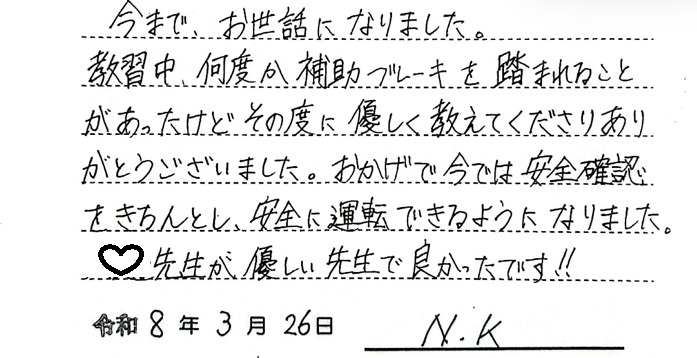 今まで、お世話になりました。
教習中、何度か補助ブレーキを踏まれること
があったけどその度に優しく教えてくださりあり
がとうございました。おかげで今では安全確認
をきちんとし、安全に運転できるようになりました。
♡先生が、優しい先生で良かったです!!
令和8年3月26日 N.K